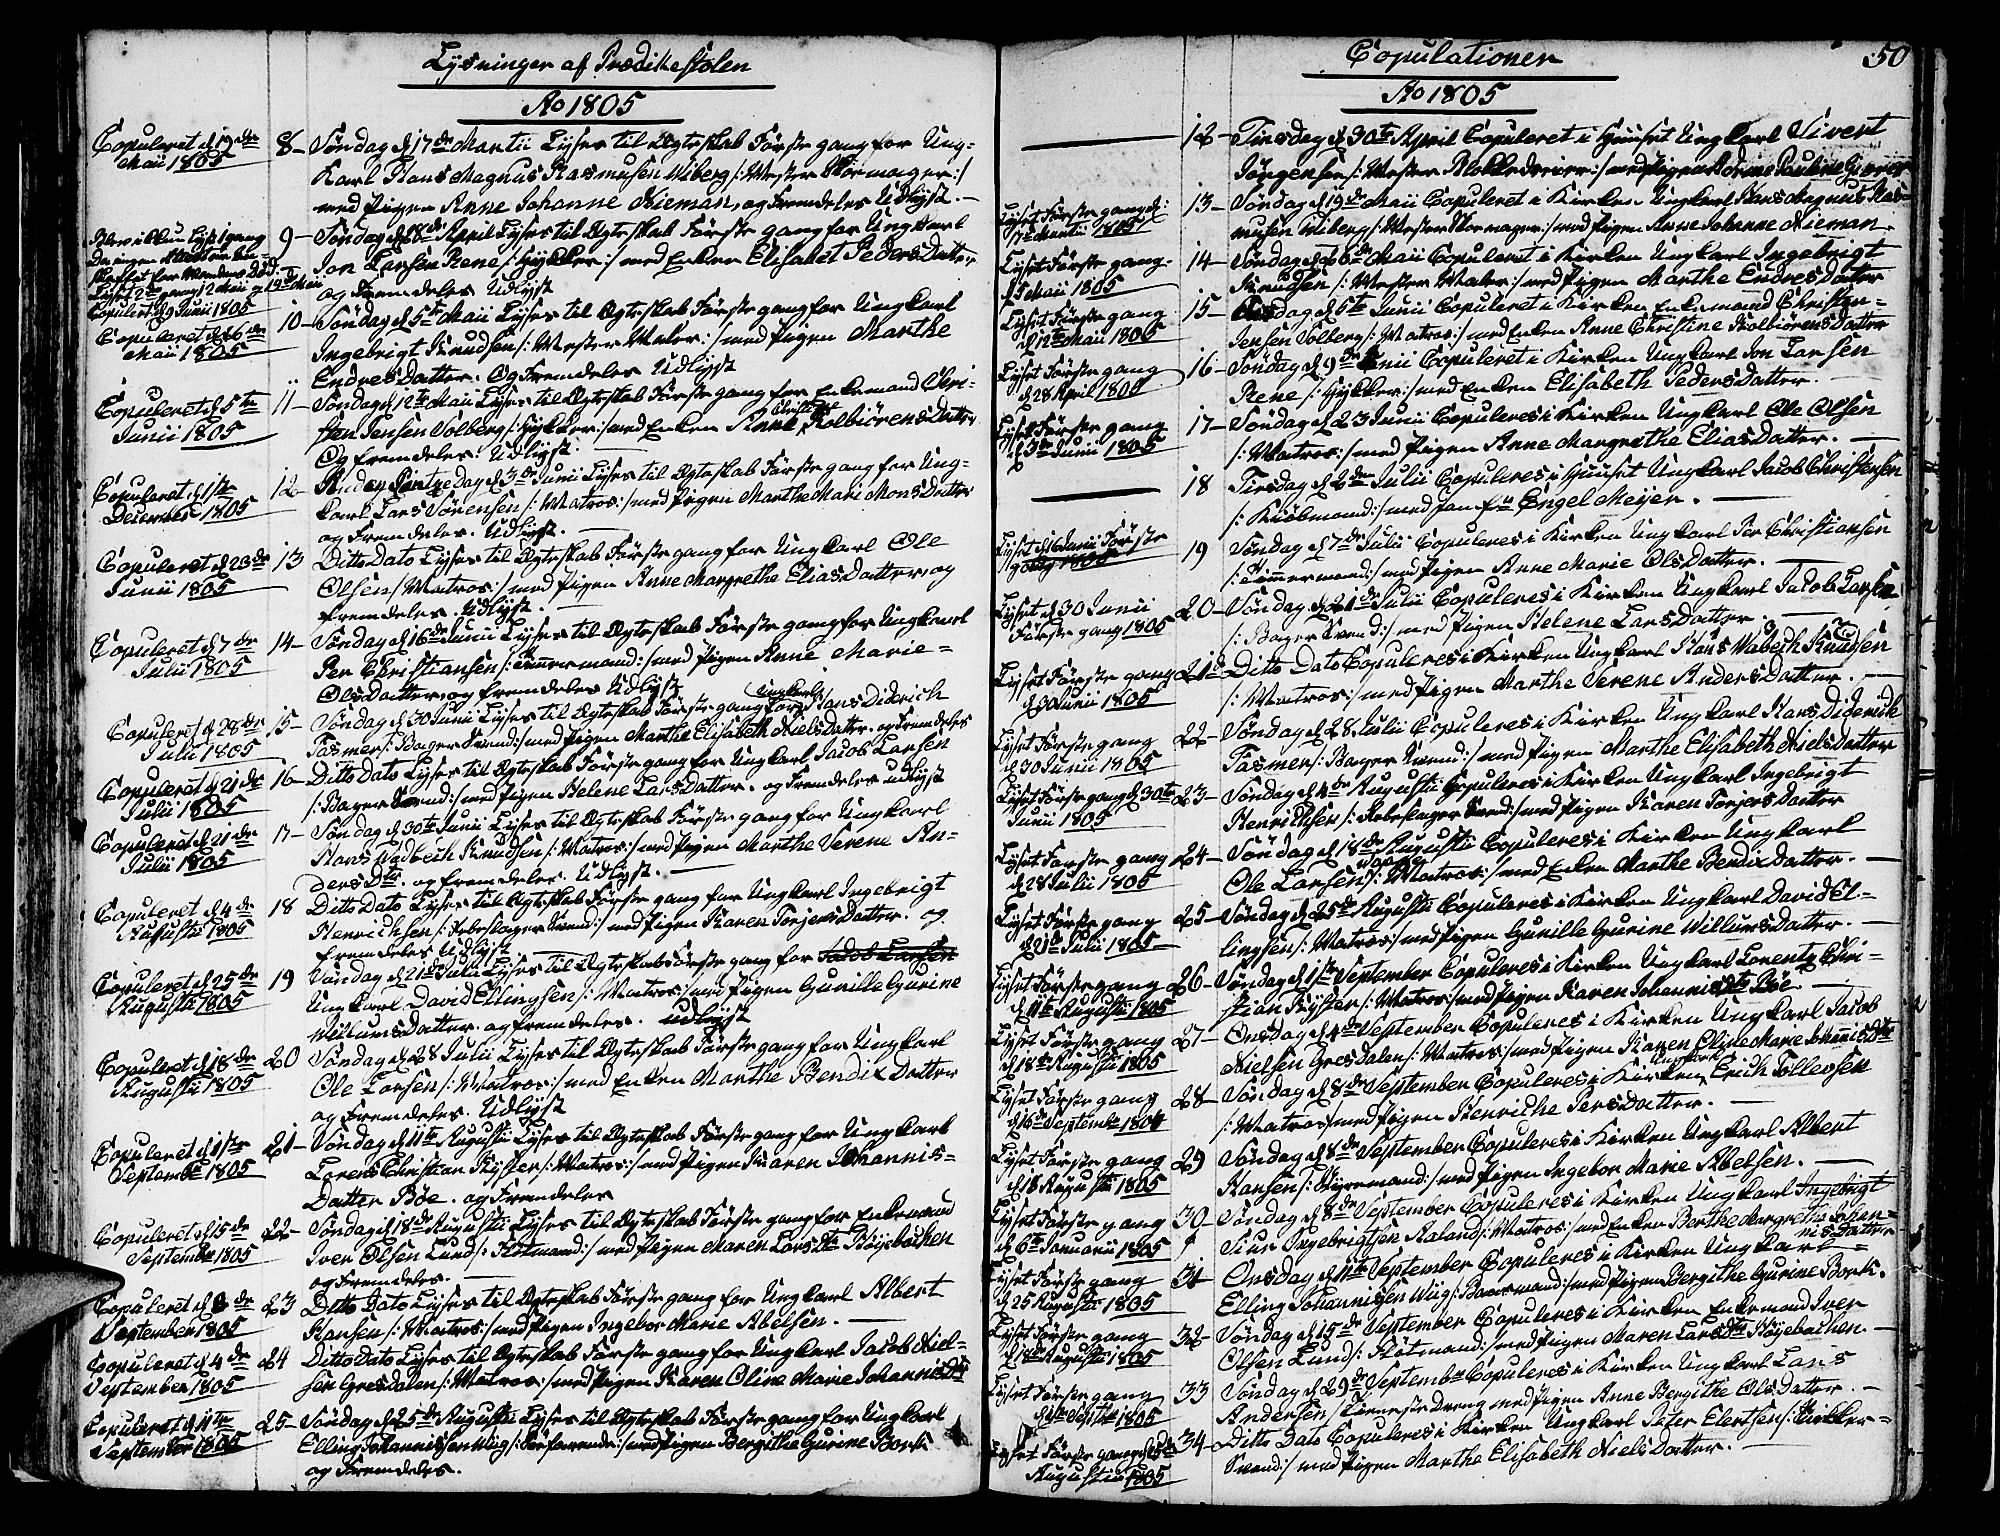 Lysninger af Prædikestolen
Ao 1805
Copuleret d 19de
Maii 1805
8- Søndag d 17de Martii Lyses til Ægteskab Første gang for Ung-
Karl Hans Magnus Rasmusen Wiberg /: Mester Skomager :/
med Pigen Anne Johanne Nieman, og Fremdeles Udlyst. -
Blev ikkun Lyst 1 gang
Lyst 2den gang 12 Maii og 19de Maii
Copuleret d 9 Junii 1805
9- Søndag d 28de April Lyses til Ægteskab Første gang for Ungkarl
Jon Larsen Rene /: Hykker :/ med Enken Elisabet Peders Datter
og Fremdeles Udlyst
Copuleret d 26de
Maii 1805
10- Søndag d 5te Maii Lyses til Ægteskab Første gang for Ungkarl
Ingebrigt Knudsen /: Mester Maler :/ med Pigen Marthe
Endres Datter. Og Fremdeles Udlyst
Copuleret d 5te
Junii 1805
11- Søndag d 12te Maii Lyses til Ægteskab Første gang for Enkemand Chri-
sten Jensen Solberg /: Hykker :/ med Enken Anne Christine Kolbiørens Datter
Og fremdeles. Udlyst. -
Copuleret d 1ste
December 1805
12 Anden Pintze Dag d 3de Junii Lyses til Ægteskab Første gang for Ung-
karl Lars Sørensen /: Matros :/ med Pigen Marthe Marie Mons Datter
og Fremdeles. Udlyst. -
Copuleret d 23de
Junii 1805
13 Ditto Dato Lyses til Ægteskab Første gang for Ungkarl Ole
Olsen /: Matros :/ med Pigen Anne Margrethe Elias Datter og
fremdeles. Udlyst. -
Copuleret d 7de
Julii 1805
14- Søndag d 16de Junii Lyses til Ægteskab Første gang for Ungkarl
Per Christiansen /: Tømmermand :/ med Pigen Anne Marie -
Ols Datter og fremdeles Udlyst
Copuleret d 28de
Julii 1805
15- Søndag d 30 Junii Lyses til Ægteskab Første gang for Ungkarl Hans Diderich
Tasmer /: Bager Svend :/ med Pigen Marthe Elisabeth Niels Datter. og Fremdeles
Copuleret d 21de
Julii 1805
16- Ditto Dato Lyses til Ægteskab Første gang for Ungkarl Jacob Larsen
/: Bager Svend :/ med Pigen Helene Lars Datter. og Fremdeles udlyst
Copuleret d 21de
Julii 1805
17- Søndag d 30te Junii Lyses til Ægteskab Første gang for Ungkarl
Hans Wadbech Knudsen /: Matros :/ med Pigen Marthe Verene An-
ders Dtr. og fremdeles. Udlyst. -
Copuleret d 4de
Augustii 1805
18 Ditto Dato Lyses til Ægteskab Første gang for Ungkarl Ingebrigt
Henrichsen /: Rebslager Svend :/ med Pigen Karen Torjers Datter. og
fremdeles Udlyst
Copuleret d 25de
Augustii 1805
19 Søndag d 21de Julii Lyses til Ægteskab Første gang for Jacob Larsen
Ungkarl David Ellingsen /: Matros :/ med Pigen Gunille Gurine
Willums Datter. og fremdeles. udlyst
Copuleret d 18de
Augustii 1805
20 Søndag d 28 Julii Lyses til Ægteskab Første gang for Ungkarl
Ole Larsen /: Matros :/ med Enken Marthe Bendix Datter
og Fremdeles. Udlyst
Copuleret d 1ste
September 1805
21- Søndag d 11te Augustii Lyses til Ægteskab Første gang for Ungkarl
Lorens Christian Kyster /: Matros :/ med Pigen Karen Johannis-
Datter Bøe. og Fremdeles
Copuleret d 15de
September 1805
22- Søndag d 18de Augustii Lyses til Ægteskab Første gang for Enkemand
Iver Olsen Lund /: Flotmand :/ med Pigen Maren Lars Dtr Bøyebachen
og Fremdeles. -
Copuleret d 8de
September 1805
23 Ditto Dato Lyses til Ægteskab Første gang for Ungkarl Albert
Hansen /: Matros :/ med Pigen Ingebor Marie Abelsen. -
Copuleret d 4de
September 1805
24 Ditto Dato Lyses til Ægteskab Første gang for Ungkarl Jacob Niel-
sen Gresdalen /: Matros :/ med Pigen Karen Oline Marie Johannis Dtr
Copuleret d 11te
September 1805
25- Søndag d 25de Augustii Lyses til Ægteskab Første gang for Ungkarl
Elling Johannissen Wiig /: Søefarende :/ med Pigen Bergithe Gurine Bork
og Fremdeles.
Copulationer
50
Ao 1805
12- Tirsdag d 30te April Copuleret i Huuset Ungkarl Sivert
Jørgensen /: Mester Blokkedreier :/ med Pigen Adrine Pauline
Lyset Første gang d:
17de Martii 1805
13- Søndag d 19de Maii Copuleret i Kirken Ungkarl Hans Magnus Ras-
musen Wiberg /: Mester Skomager :/ med Pigen Anne Johanne Nieman
Lyset Første gang
d 5 Maii 1805
14- Søndag d 26de Maii Copuleret i Kirken Ungkarl Ingebrigt
Knudsen /: Mester Maler :/ med Pigen Marthe Endres Datter
Lyset Første gang
d 12te Maii 1805
15- Onsdag d 5te Junii Copuleret i Kirken Enkemand Christen-
Jensen Solberg /: Matros :/ med Enken Anne Christine Kolbiørens Datter
Lyset Første gang
d 28 April 1805
16- Søndag d 9de Junii Copuleret i Kirken Ungkarl Jon Larsen
Rene /: Hykker :/ med Enken Elisabeth Peders Datter. -
Lyset Første gang
d 3de Junii 1805
17- Søndag d 23 Junii Copuleres i Kirken Ungkarl Ole Olsen
/: Matros :/ med Pigen Anne Margrethe Elias Datter. -
18 Tirsdag d 2de Julii Copuleres i Huuset Ungkarl Jacob Christensen
/: Kiøbmand :/ med Jomfru Engel Meyer. -
Lyset d 16 Junii Første
gang 1805
19 Søndag d 7de Julii Copuleres i Kirken Ungkarl Per Christiansen
/: Tømmermand :/ med Pigen Anne Marie Ols Datter. -
Lyset d 30 Junii
Første gang 1805
20- Søndag d 21de Julii Copuleres i Kirken Ungkarl Jacob Larsen
/: Bager Svend :/ med Pigen Helene Lars Datter. -
Lyset Første gang
d 30 Junii 1805
21- Ditto Dato Copuleres i Kirken Ungkarl Hans Wabech Knudsen
/: Matros :/ med Pigen Marthe Verene Anders Datter. -
Lyset Første gang
d 30 Junii 1805
22- Søndag d 28 Julii Copuleres i Kirken Ungkarl Hans Diderich
Tasmer /: Bager Svend :/ med Pigen Marthe Elisabeth Niels Datter
Lyset Første gang d 30te
Junii 1805
23- Søndag d 4de Augustii Copuleres i Kirken Ungkarl Ingebrigt
Henrichsen /: Rebslager Svend :/ med Pigen Karen Torjers Datter
Lyset Første gang
d 28 Julii 1805
24- Søndag d 18de Augustii Copuleres i Kirken Ungkarl
Ole Larsen /: Matros :/ med Enken Marthe Bendix Datter. -
Lyset Første gang
d 21de Julii 1805
25- Søndag d 25de Augustii Copuleres i Kirken Ungkarl David El-
lingsen /: Matros :/ med Pigen Gunille Gurine Willums Datter. -
Lyset Første gang
d 11te Augustii 1805
26- Søndag d 1ste September Copuleres i Kirken Ungkarl Lorentz Chri-
stian Kyster /: Matros :/ med Pigen Karen Johannis Dtr Bøe. -
Lyset Første gang
d 18de Augustii 1805
27- Onsdag d 4de September Copuleres i Kirken Ungkarl Jacob
Nielsen Gresdalen /: Matros :/ med Pigen Karen Oline Marie Johannis Dtr
Lyset Første gang
d 16de Septembr 1804
28- Søndag d 8de September Copuleres i Kirken Ungkarl Erich Tollevsen
/: Matros :/ med Pigen Henriche Pers Datter. -
Lyset Første gang
d 18 Augustii 1805
29 Søndag d 8de September Copuleres i Kirken Ungkarl Albert
Hansen /: Styrremand :/ med Pigen Ingebor Marie Abelsen. -
Lyset Første gang
d 6te Januarii 1805
30- Søndag d 8de September Copuleres i Kirken Ungkarl Ingebrigt
Siur Ingebrigtsen Aaland /: Matros :/ med Enken Berthe Margrethe Johan-
nis Datter
Lyset Første gang
d 25 Augustii 1805
31 Onsdag d 11te September Copuleres i Kirken Ungkarl -
Elling Johannissen Wiig /: Baarmand :/ med Pigen Bergithe Gurine Bork.
Lyset Første gang
d 18de Augustii 1805
32- Søndag d 15de September Copuleres i Kirken Enkemand Iver
Olsen Lund /: Flotmand :/ med Pigen Maren Lars Dtr Høyebachen -
Lyset Første gang
1805
33 Søndag d 29de Septembr Copuleres i Kirken Ungkarl Lars
Andersen /: Tieneste Dreng med Pigen Anne Bergithe Ols Datter. -
Lyset Første gang
Augustii 1805
34- Ditto Dato Copuleres i Kirken Ungkarl Peter Elertsen /:
Svend :/ med Pigen Marthe Elisabeth Niels Datter. -